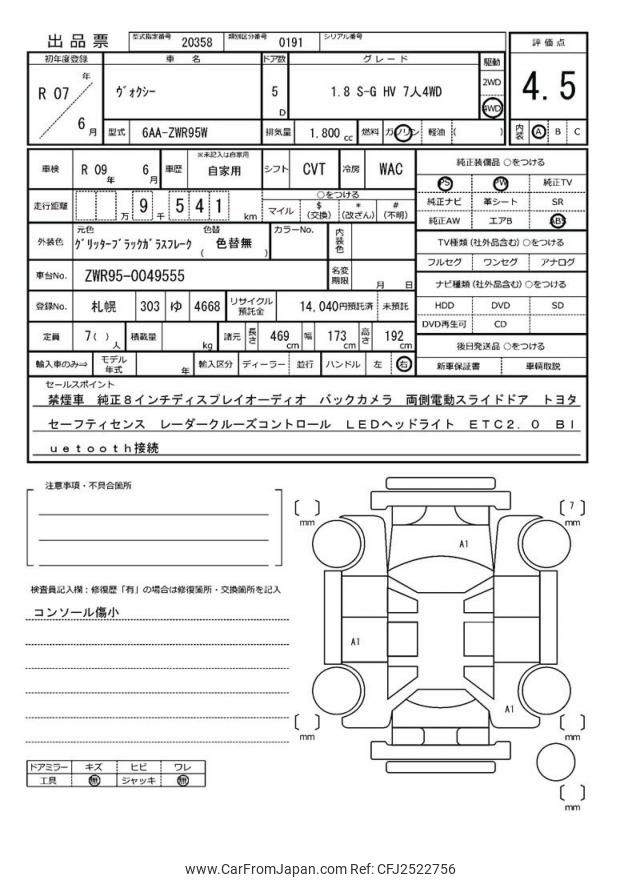 出品票 型式指定番号 20358 類別区分番号 0191 シリアル番号
初年度登録 車 名 ドア数 グレード 駆動 評価点
R 07 年 6 月 ヴォクシー 5 D 1.8 S-G HV 7人4WD 2WD 4WD 4.5
型式 6AA-ZWR95W 排気量 1,800 cc 燃料 ガソリン 軽油 ( ) 内装 A B C
車検 R 09 年 6 月 車歴 ※未記入は自家用 自家用 シフト CVT 冷房 WAC
走行距離 万 9 千 5 4 1 km ○をつける マイル $ (交換) * (改ざん) # (不明)
外装色 元色 グリッターブラックガラスフレーク 色替 ( 色替無 ) カラーNo. 内装色
車台No. ZWR95-0049555 名変期限 月 日
登録No. 札幌 303 ゆ 4668 リサイクル預託金 14,040円預託済 未預託
定員 7( ) 人 積載量 kg 諸元 長さ 469 cm 幅 173 cm 高さ 192 cm
輸入車のみ⇒ モデル年式 年 輸入区分 ディーラー 並行 ハンドル 左 右
純正装備品 ○をつける
PS PW 純正TV
純正ナビ 革シート SR
純正AW エアB ABS
TV種類 (社外品含む) ○をつける
フルセグ ワンセグ アナログ
ナビ種類 (社外品含む) ○をつける
HDD DVD SD
DVD再生可 CD
後日発送品 ○をつける
新車保証書 車輌取説
セールスポイント
禁煙車 純正8インチディスプレイオーディオ バックカメラ 両側電動スライドドア トヨタ
セーフティセンス レーダークルーズコントロール LEDヘッドライト ETC2.0 Bl
uetooth接続
注意事項・不具合箇所
検査員記入欄：修復歴「有」の場合は修復箇所・交換箇所を記入
コンソール傷小
ドアミラー キズ ヒビ ワレ
工具 無 ジャッキ 無
mm
7
mm
A1
A1
A1
mm
mm
mm
www.CarFromJapan.com Ref: CFJ2522756